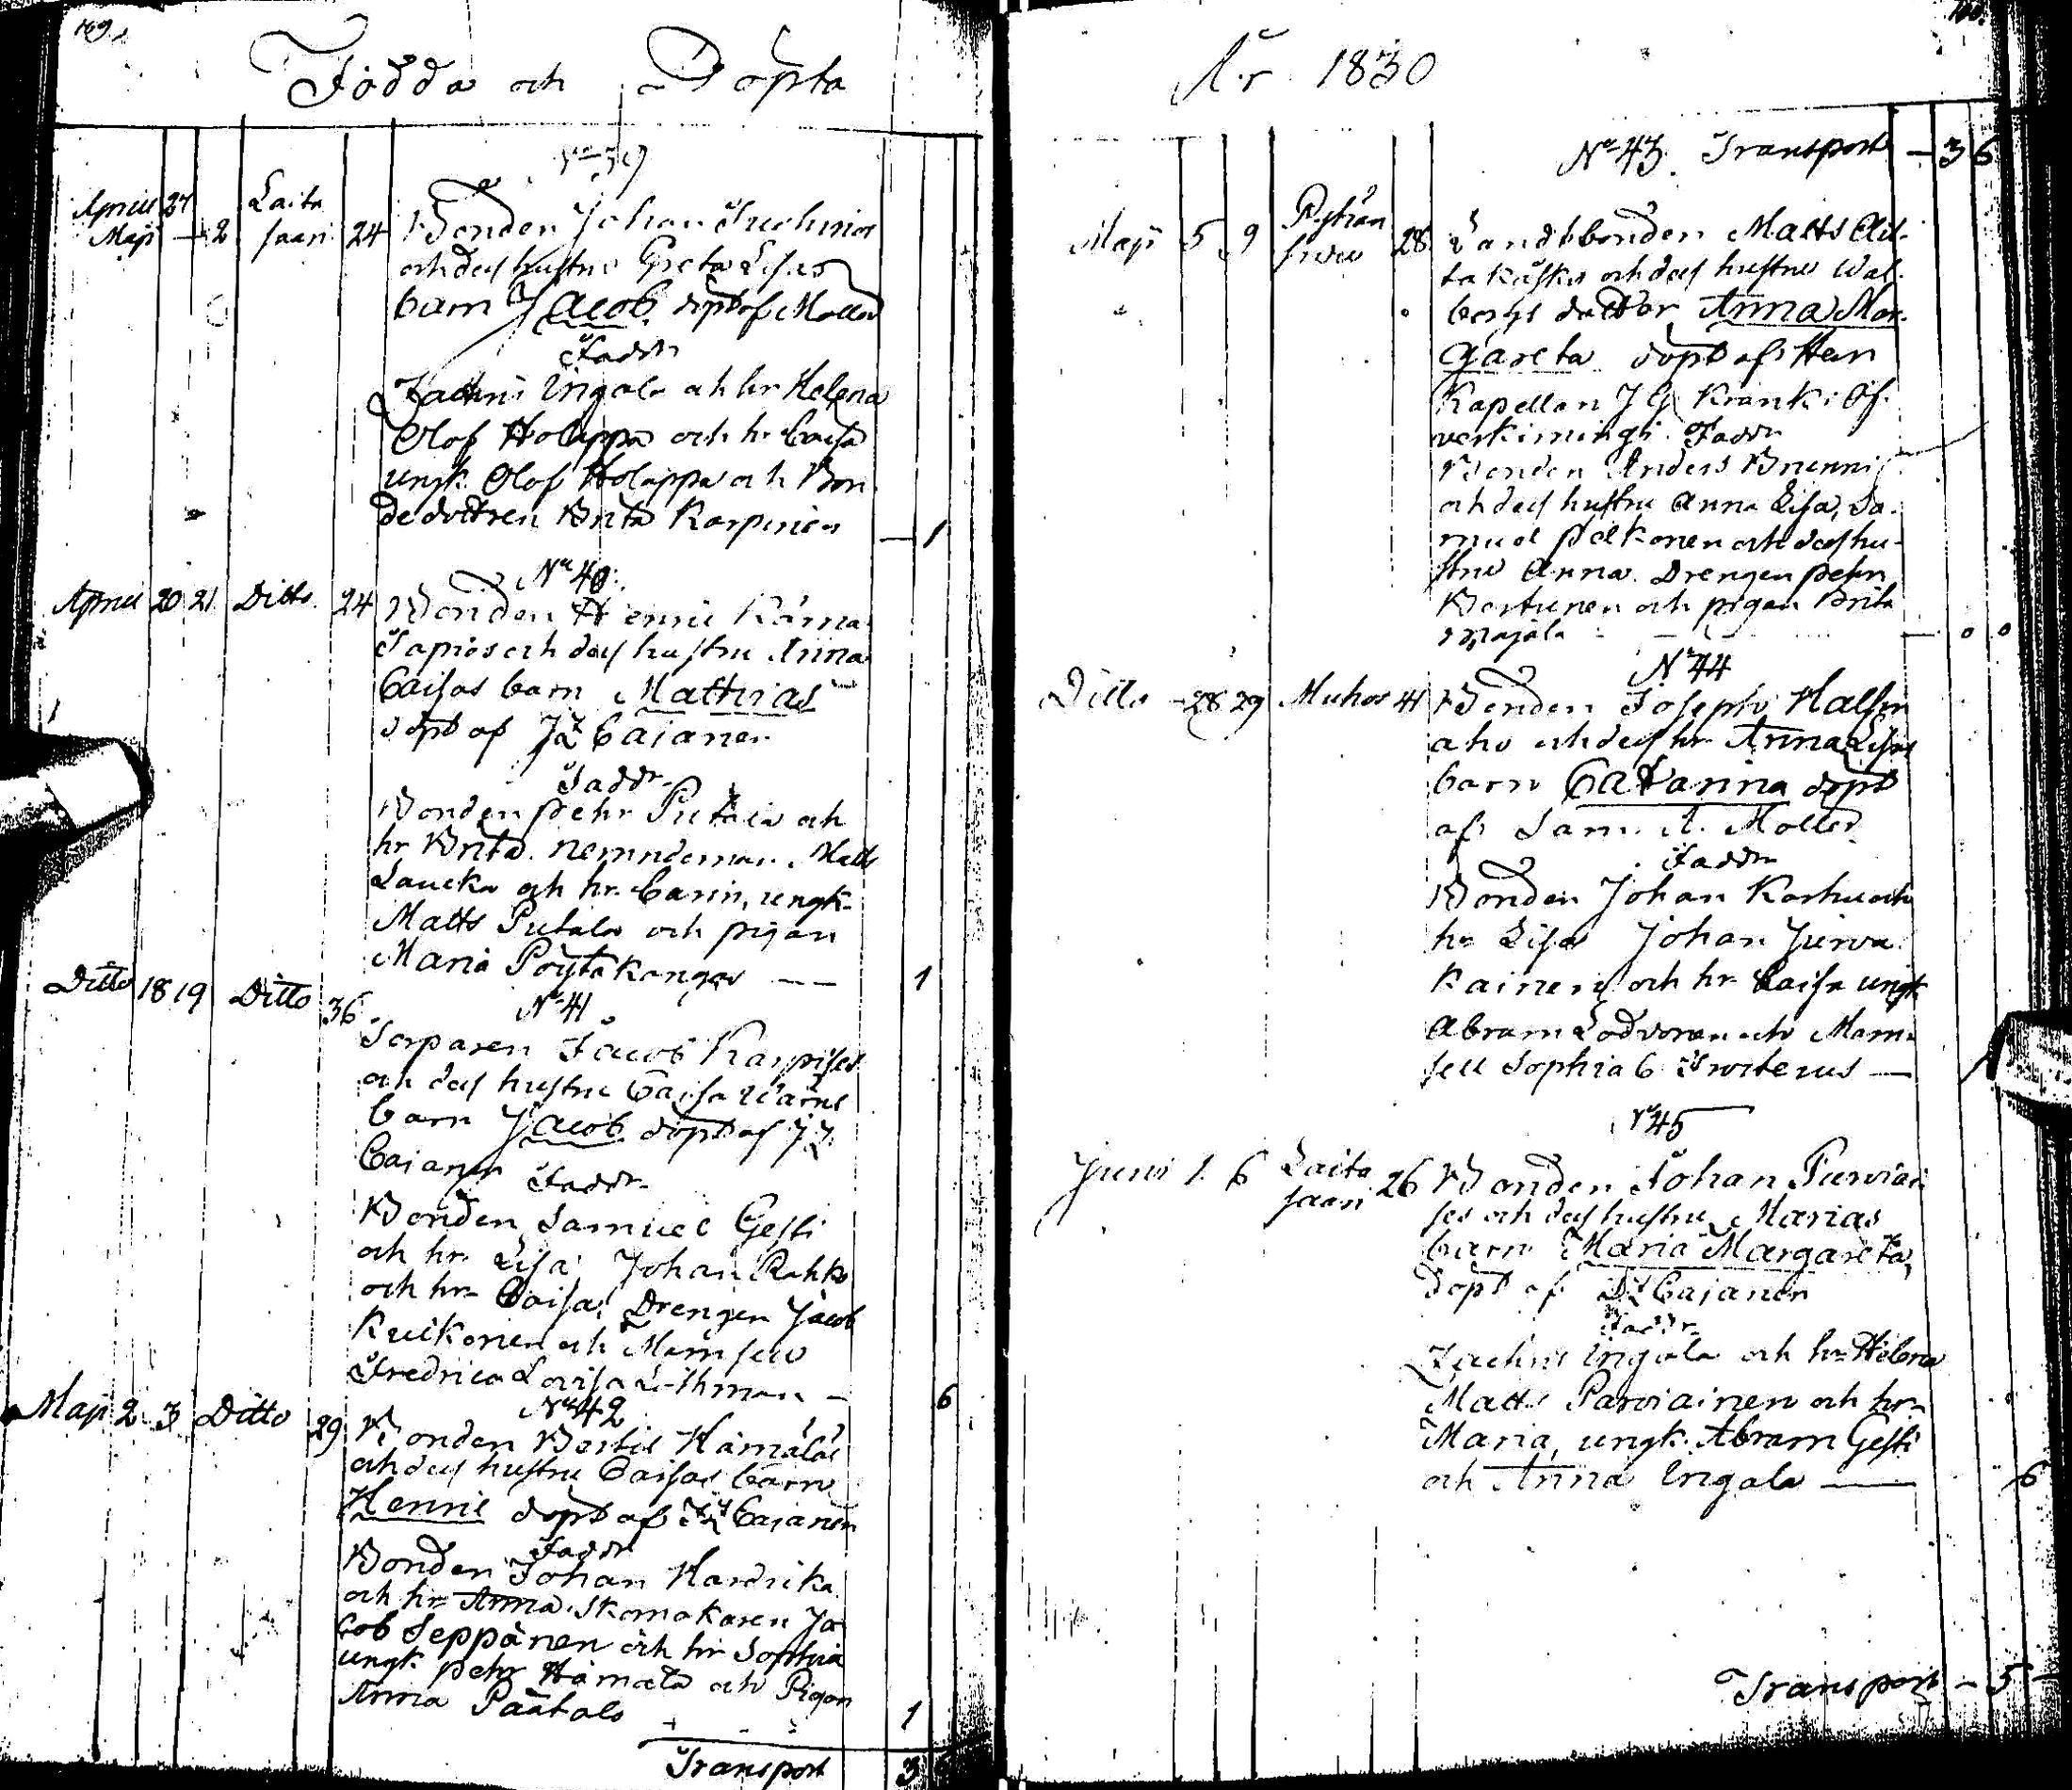 169.
Födda och Döpta
No 39
Aprill 27
Maji 2 Laita saari 24 Bonden Johan Juchinios
och dess hustrus Greta Lisas
barn Jacob, döpt af Moller
Faddr
Zachris Ingala och hr Helena
Olof Holappa och hr Caisa
ungk. Olof Holappa och Bon
de dottren Brita Karpinen — 1
No 40.
April 20 21 Ditto 24 Bonden Henric
och dess hustru Anna
Caisas barn Mathias
döpt af JZ Cajanen
Faddr
Bonden Pehr Putala och
hr Brita. Nemndeman Matts
Laucka och hr Carin, ungk
Matts Putala och pigan
Maria Pöytäkangas — — 1
Ditto 18 19 Ditto 36 No 41
Torparen Jacob Karpises
och dess hustru Caisa
barn Jacob döpt af JZ
Cajanen Faddr
Bonden Samuel Gesti
och hr Lisa Johan Rahko
och hr Caisa, Drengen Jacob
Kuikonen och Mamsell
Fredrica Lovisa — 6
Maji 2 3 Ditto 29 No 42
Bonden Bertil Hämäläs
och dess hustru Caisas barn
Henric döpt af JZ Cajanen
Faddr
Bonden Johan Hardika
och hr Anna. Skomakaren Ja
cob Seppänen och hr Sophia
ungk Pehr Hämälä och Pigan
Anna Päätalo 1
Transport 3
År 1830
No 43. Transport — 3 6
Maji 5 9 28 Landtbonden Matts
och dess hustru Wal
borgs dotter Anna Mar
gareta döpt af Herr
Kapellan J G Krank i Öf
verkimingi. Faddr
Bonden Anders Brunni
och dess hustru Anna Lisa, Sa
muel Pelkonen och dess hu
stru Anna. Drengen Pehr
och pigan Brita
Majala — 0 0
No 44
Ditto 28 29 Muhos 41 Bonden Joseph Halsin
aho och dess hr Anna Lisas
barn Catarina döpt
af Sam. A. Moller
Faddr
Bonden Johan Karhu och
hr Lisa Johan Jurva
kainen och hr Caisa ungk
Abram och Mam
sell Sophia C — 1
No 45
Juni 1. 6 Laita saari 26 Bonden Johan Parviai
ses och dess hustru Marias
barn Maria Margareta,
döpt af JZ Cajanen
Faddr
Zachris Ingala och hr Helena
Matts Parviainen och hr
Maria, ungk. Abram Gesti
och Anna Ingala — 6
Transport — 5 —